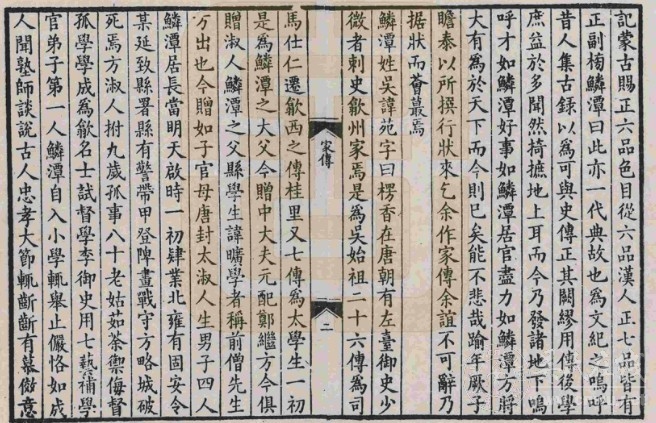 記蒙古賜正六品色目從六品漢人正七品皆有
正副楠鱗潭曰此亦一代典故也爲文紀之嗚呼
昔人集古録以爲可與史傳正其闕繆用傳後學
庶益於多聞然掎摭地上耳而今乃發諸地下嗚
呼才如鱗潭好事如鱗潭居官盡力如鱗潭方將
大有爲於天下而今則已矣能不悲哉踰年厥子
瞻泰以所撰行狀來乞余作家傳余誼不可辭乃
据狀而薈蕞焉
鱗潭姓吳諱苑字曰楞香在唐朝有左臺御史少
微者刺史歙州家焉是爲吳始祖二十六傳爲司
馬仕仁遷歙西之傳桂里又七傳爲太學生一初
是爲鱗潭之大父今贈中大夫元配鄭繼方今俱
贈淑人鱗潭之父縣學生諱曠學者稱前僧先生
方出也今贈如子官母唐封太淑人生男子四人
鱗潭居長當明天啟時一初肄業北雍有固安令
某延致縣署縣有警帶甲登陴畫戰守方略城破
死焉方淑人拊九歲孤事八十老姑茹荼禦侮督
孤學學成爲歙名士試督學李御史用七藝補學
官弟子第一人鱗潭自入小學輒舉止儼恪如成
人聞塾師談說古人忠孝大節輒齗齗有慕傚意
家傳
二